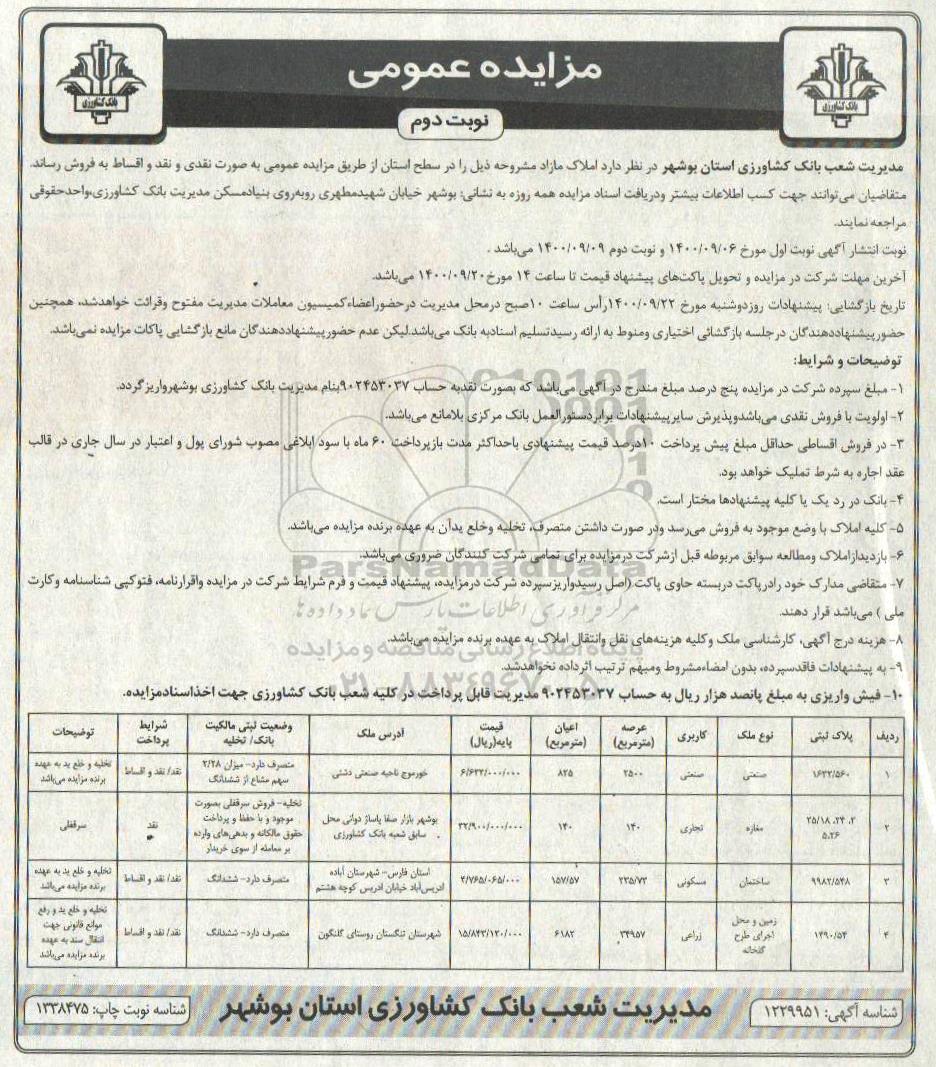 مزایده عمومی
بانک کشاورزی
بانک کشاورزی
نوبت دوم
مدیریت شعب بانک کشاورزی استان بوشهر در نظر دارد املاک مازاد مشروحه ذیل را در سطح استان از طریق مزایده عمومی به صورت نقدی و نقد و اقساط به فروش رساند.
متقاضیان می‌توانند جهت کسب اطلاعات بیشتر ودریافت اسناد مزایده همه روزه به نشانی: بوشهر خیابان شهیدمطهری روبه‌روی بنیادمسکن مدیریت بانک کشاورزی،واحدحقوقی
مراجعه نمایند.
نوبت انتشار آگهی نوبت اول مورخ ۱۴۰۰/۰۹/۰۶ و نوبت دوم ۱۴۰۰/۰۹/۰۹ می‌باشد .
آخرین مهلت شرکت در مزایده و تحویل پاکت‌های پیشنهاد قیمت تا ساعت ۱۴ مورخ۱۴۰۰/۰۹/۲۰ می‌باشد.
تاریخ بازگشایی: پیشنهادات روزدوشنبه مورخ ۱۴۰۰/۰۹/۲۲رأس ساعت ۱۰صبح درمحل مدیریت درحضوراعضاءکمیسیون معاملات مدیریت مفتوح وقرائت خواهدشد، همچنین
حضورپیشنهاددهندگان درجلسه بازگشائی اختیاری ومنوط به ارائه رسیدتسلیم اسنادبه بانک می‌باشد.لیکن عدم حضورپیشنهاددهندگان مانع بازگشایی پاکات مزایده نمی‌باشد.
توضیحات و شرایط:
۱- مبلغ سپرده شرکت در مزایده پنج درصد مبلغ مندرج در آگهی می‌باشد که بصورت نقدبه حساب ۹۰۲۴۵۳۰۳۷بنام مدیریت بانک کشاورزی بوشهرواریزگردد.
۲- اولویت با فروش نقدی می‌باشدوپذیرش سایرپیشنهادات برابردستورالعمل بانک مرکزی بلامانع می‌باشد.
۳- در فروش اقساطی حداقل مبلغ پیش پرداخت ۱۰درصد قیمت پیشنهادی باحداکثر مدت بازپرداخت ۶۰ ماه با سود ابلاغی مصوب شورای پول و اعتبار در سال جاری در قالب
عقد اجاره به شرط تملیک خواهد بود.
۴- بانک در رد یک یا کلیه پیشنهادها مختار است.
۵- کلیه املاک با وضع موجود به فروش می‌رسد ودر صورت داشتن متصرف، تخلیه وخلع یدآن به عهده برنده مزایده می‌باشد.
۶- بازدیدازاملاک ومطالعه سوابق مربوطه قبل ازشرکت درمزایده برای تمامی شرکت کنندگان ضروری می‌باشد.
ParsNamadData
۷- متقاضی مدارک خود رادرپاکت دربسته حاوی پاکت (اصل رسیدواریزسپرده شرکت درمزایده، پیشنهاد قیمت و فرم شرایط شرکت در مزایده واقرارنامه، فتوکپی شناسنامه وکارت
ملی ) می‌باشد قرار دهند.
مرکز فرآوری اطلاعات پارس نماد داده‌ها
۸- هزینه درج آگهی، کارشناسی ملک وکلیه هزینه‌های نقل وانتقال املاک به عهده برنده مزایده می‌باشد.
پایگاه اطلاع رسانی مناقصه و مزایده
۹- به پیشنهادات فاقدسپرده، بدون امضاءمشروط ومبهم ترتیب اثرداده نخواهدشد.
۱۰- فیش واریزی به مبلغ پانصد هزار ریال به حساب ۹۰۲۴۵۳۰۳۷ مدیریت قابل پرداخت در کلیه شعب بانک کشاورزی جهت اخذاسنادمزایده.
ردیف پلاک ثبتی نوع ملک کاربری عرصه (مترمربع) اعیان (مترمربع) قیمت پایه(ریال) آدرس ملک وضعیت ثبتی مالکیت بانک/ تخلیه شرایط پرداخت توضیحات
۱ ۱۶۳۳/۵۶۰ صنعتی صنعتی ۲۵۰۰ ۸۲۵ ۶/۶۳۲/۰۰۰/۰۰۰ خورموج ناحیه صنعتی دشتی متصرف دارد- میزان ۲/۲۸ سهم مشاع از ششدانگ نقد/ نقد و اقساط تخلیه و خلع ید به عهده برنده مزایده می‌باشد
۲ ۲، ۲۴، ۲۵/۱۸ ۵،۲۶ مغازه تجاری ۱۴۰ ۱۴۰ ۳۲/۹۰۰/۰۰۰/۰۰۰ بوشهر بازار صفا پاساژ دوانی محل سابق شعبه بانک کشاورزی تخلیه- فروش سرقفلی بصورت موجود و با حفظ و پرداخت حقوق مالکانه و بدهی‌های وارده بر معامله از سوی خریدار نقد سرقفلی
۳ ۹۹۸۲/۵۴۸ ساختمان مسکونی ۲۳۵/۷۳ ۱۵۷/۵۷ ۴/۷۶۵/۰۶۵/۰۰۰ استان فارس- شهرستان آباده ادریس‌آباد خیابان ادریس کوچه هشتم متصرف دارد- ششدانگ نقد/ نقد و اقساط تخلیه و خلع ید به عهده برنده مزایده می‌باشد
۴ ۱۴۹۰/۵۴ زمین و محل اجرای طرح گلخانه زراعی ۳۴۹۵۷ ۶۱۸۲ ۱۵/۸۴۳/۱۲۰/۰۰۰ شهرستان تنگستان روستای گلنگون متصرف دارد- ششدانگ نقد/ نقد و اقساط تخلیه و خلع ید و رفع موانع قانونی جهت انتقال سند به عهده برنده مزایده می‌باشد
شناسه آگهی: ۱۲۲۹۹۵۱
مدیریت شعب بانک کشاورزی استان بوشهر
شناسه نوبت چاپ: ۱۳۳۸۴۷۵